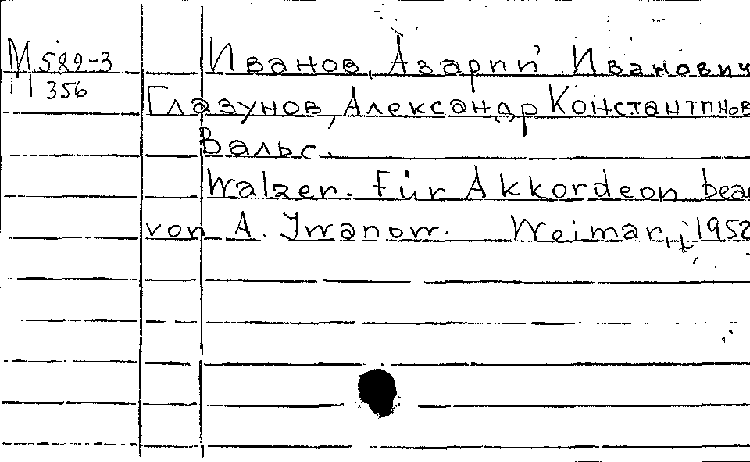 М 589-3 Иванов, Азарий Иванович
П 356
Глазунов, Александр Константинов
Вальс.
Walzer. Für Akkordeon bear
von A. Iwanow. Weimar, 1952